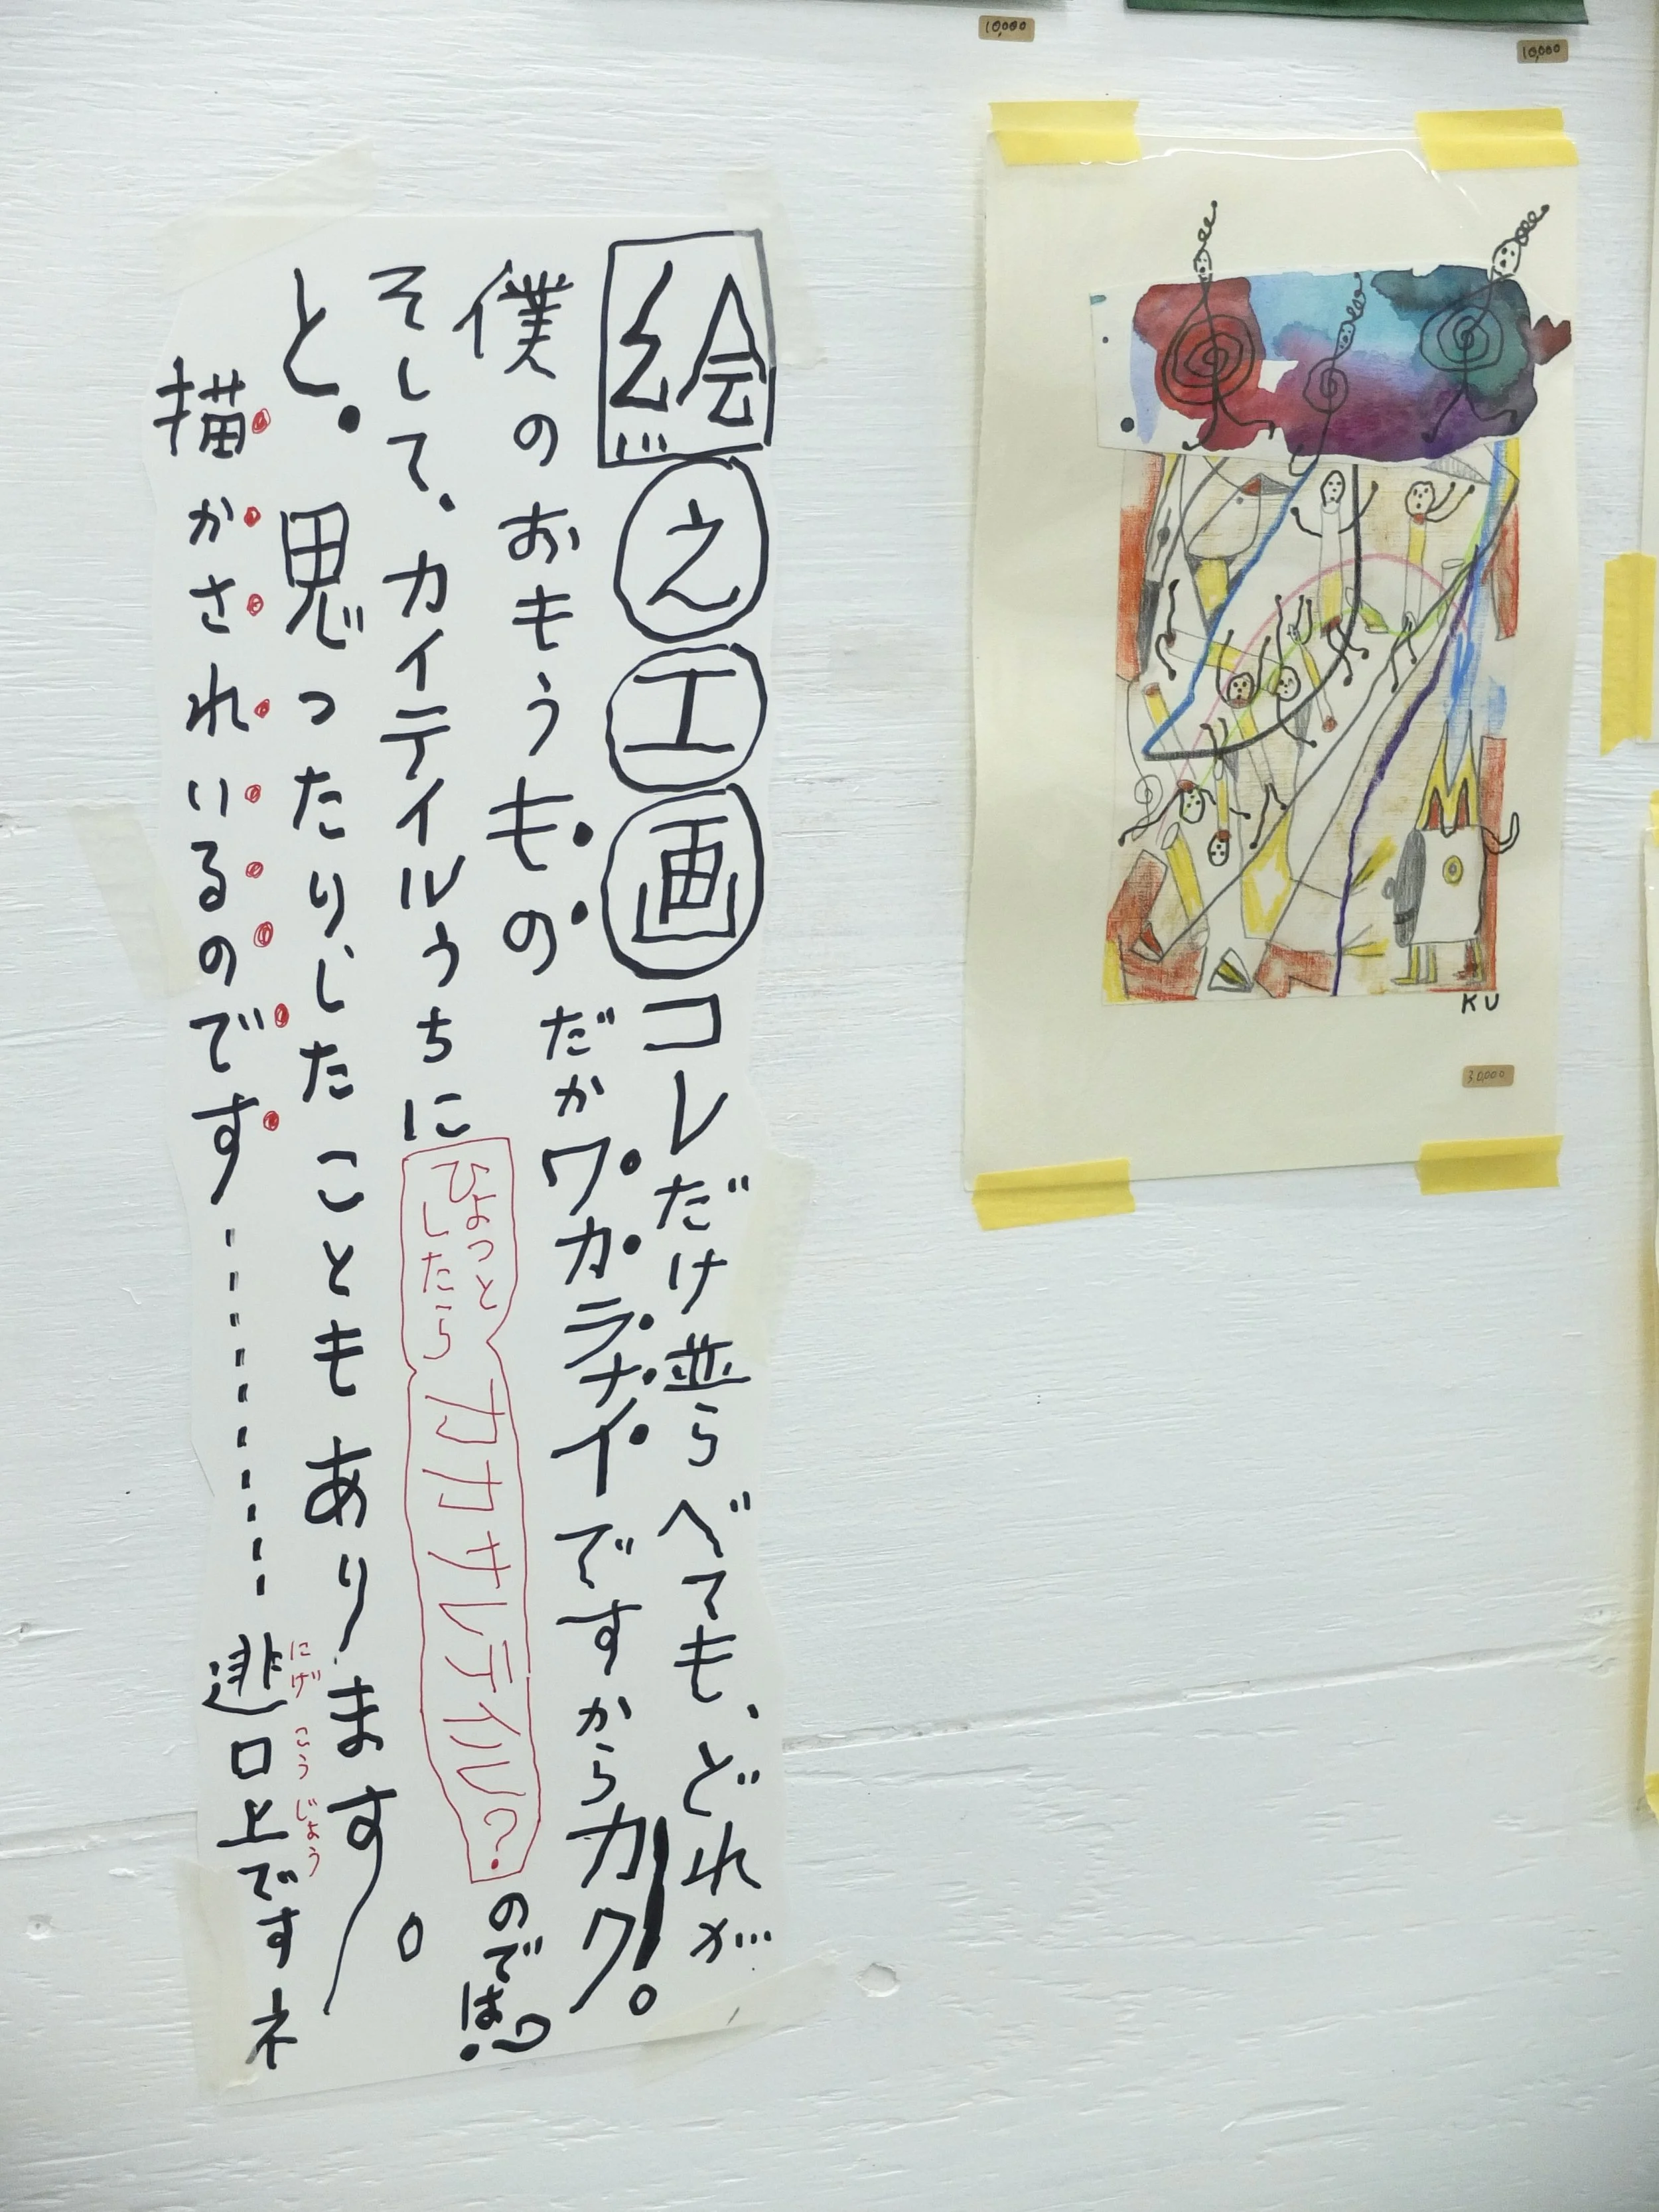 絵えエ画コレだけ並らべても、どれが
僕のおもうものだかワカラナイですからカク!。
そして、カイテイルうちにひょっとしたらカカサレテイル?のでは?
と。思ったりしたこともあります。
描かされいるのです…………逃口上ですネ
にげこうじょう
10,000
10,000
KU
30,000